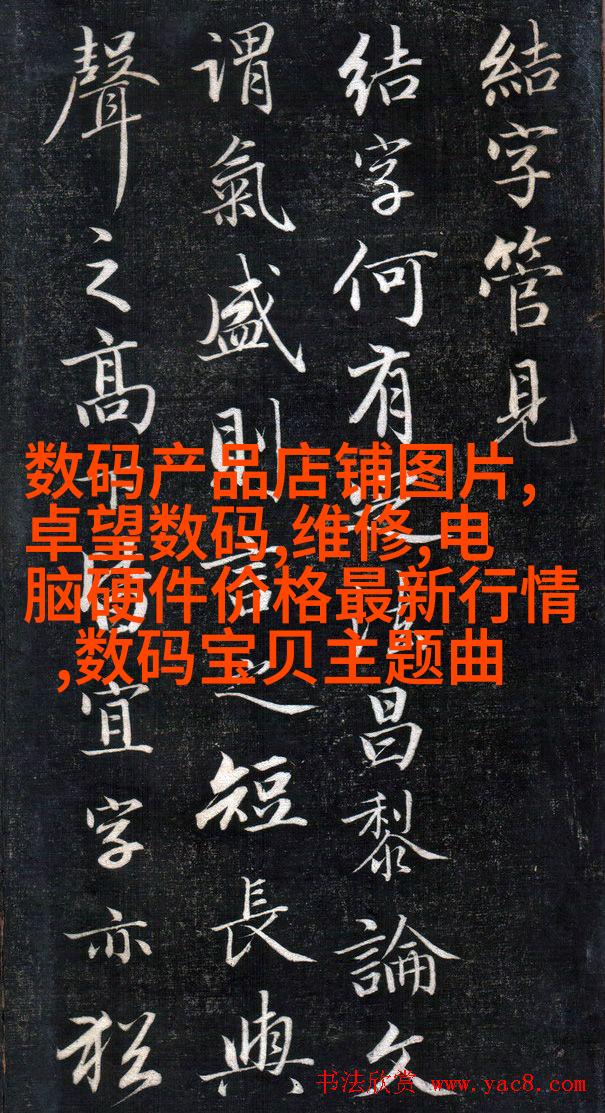 結字管見
结字何有昌黎論文
謂氣盛則言之短長與
聲之高下皆宜字亦猶
数码产品店铺图片,
卓望数码,维修,电
脑硬件价格最新行情
,数码宝贝主题曲
书法欣赏 www.yac8.com